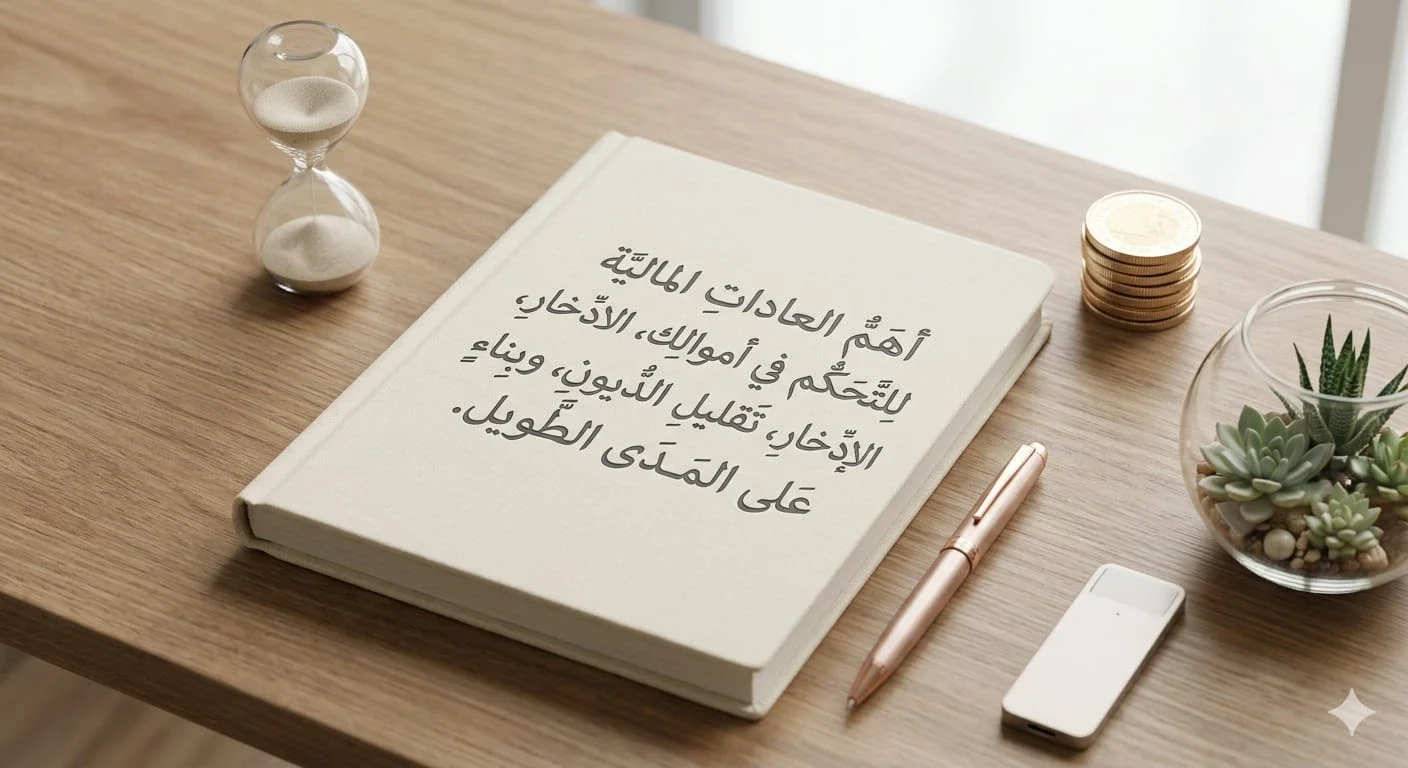 أهَمُّ العاداتِ الماليَّة
لِلتَّحَكُّم في أموالِك، الادِّخارِ،
الإدِّخارِ، تَقليلِ الدُّيونِ، وبِناءٍ
عَلى المَـدَى الطَّويل.